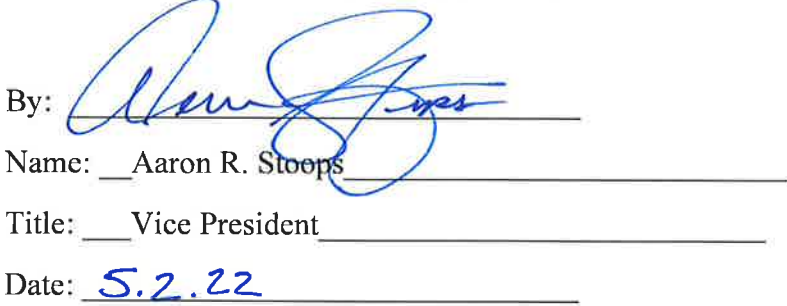 By: Aaron Stoops
Name: Aaron R. Stoops
Title: Vice President
Date: 5.2.22